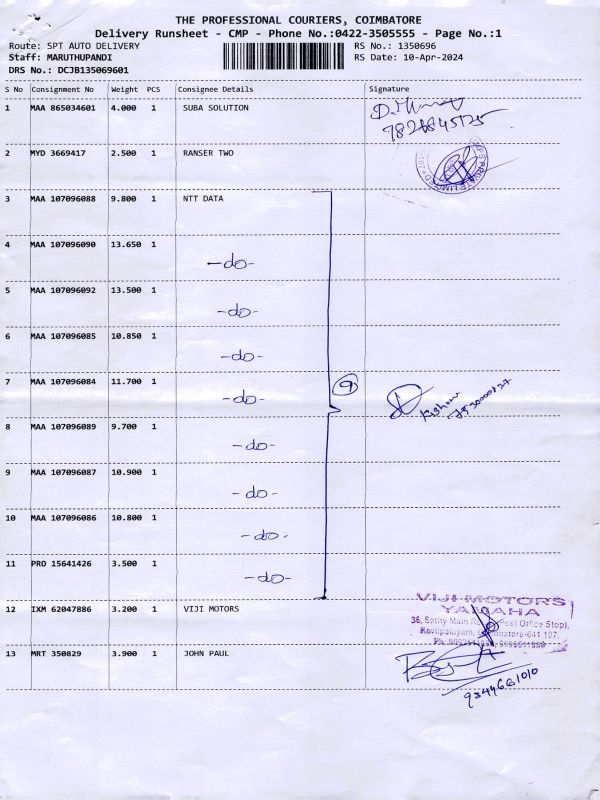 THE PROFESSIONAL COURIERS, COIMBATORE
Delivery Runsheet - CMP - Phone No.:0422-3505555 - Page No.:1
Route: SPT AUTO DELIVERY RS No.: 1350696
Staff: MARUTHUPANDI RS Date: 10-Apr-2024
DRS No.: DCJB135069601
S No Consignment No Weight PCS Consignee Details Signature
1 MAA 865034601 4.000 1 SUBA SOLUTION
2 MYD 3669417 2.500 1 RANSER TWO
PRIVATE LIMITED
3 MAA 107096088 9.800 1 NTT DATA
4 MAA 107096090 13.650 1 -do-
5 MAA 107096092 13.500 1 -do-
6 MAA 107096085 10.850 1 -do-
7 MAA 107096084 11.700 1 -do- 9
Kishore
8 MAA 107096089 9.700 1 -do-
9 MAA 107096087 10.900 1 -do-
10 MAA 107096086 10.800 1 -do-
11 PRO 15641426 3.500 1 -do-
12 IXM 62047886 3.200 1 VIJI MOTORS
VIJI MOTORS
YAMAHA
36, Sathy Main (Post Office Stop),
Kovilpalayam, Coimbatore-641 107.
13 MRT 350829 3.900 1 JOHN PAUL
9344661010